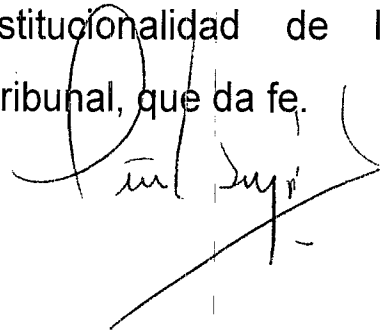 stitucionalidad de l
ribunal, que da fe.